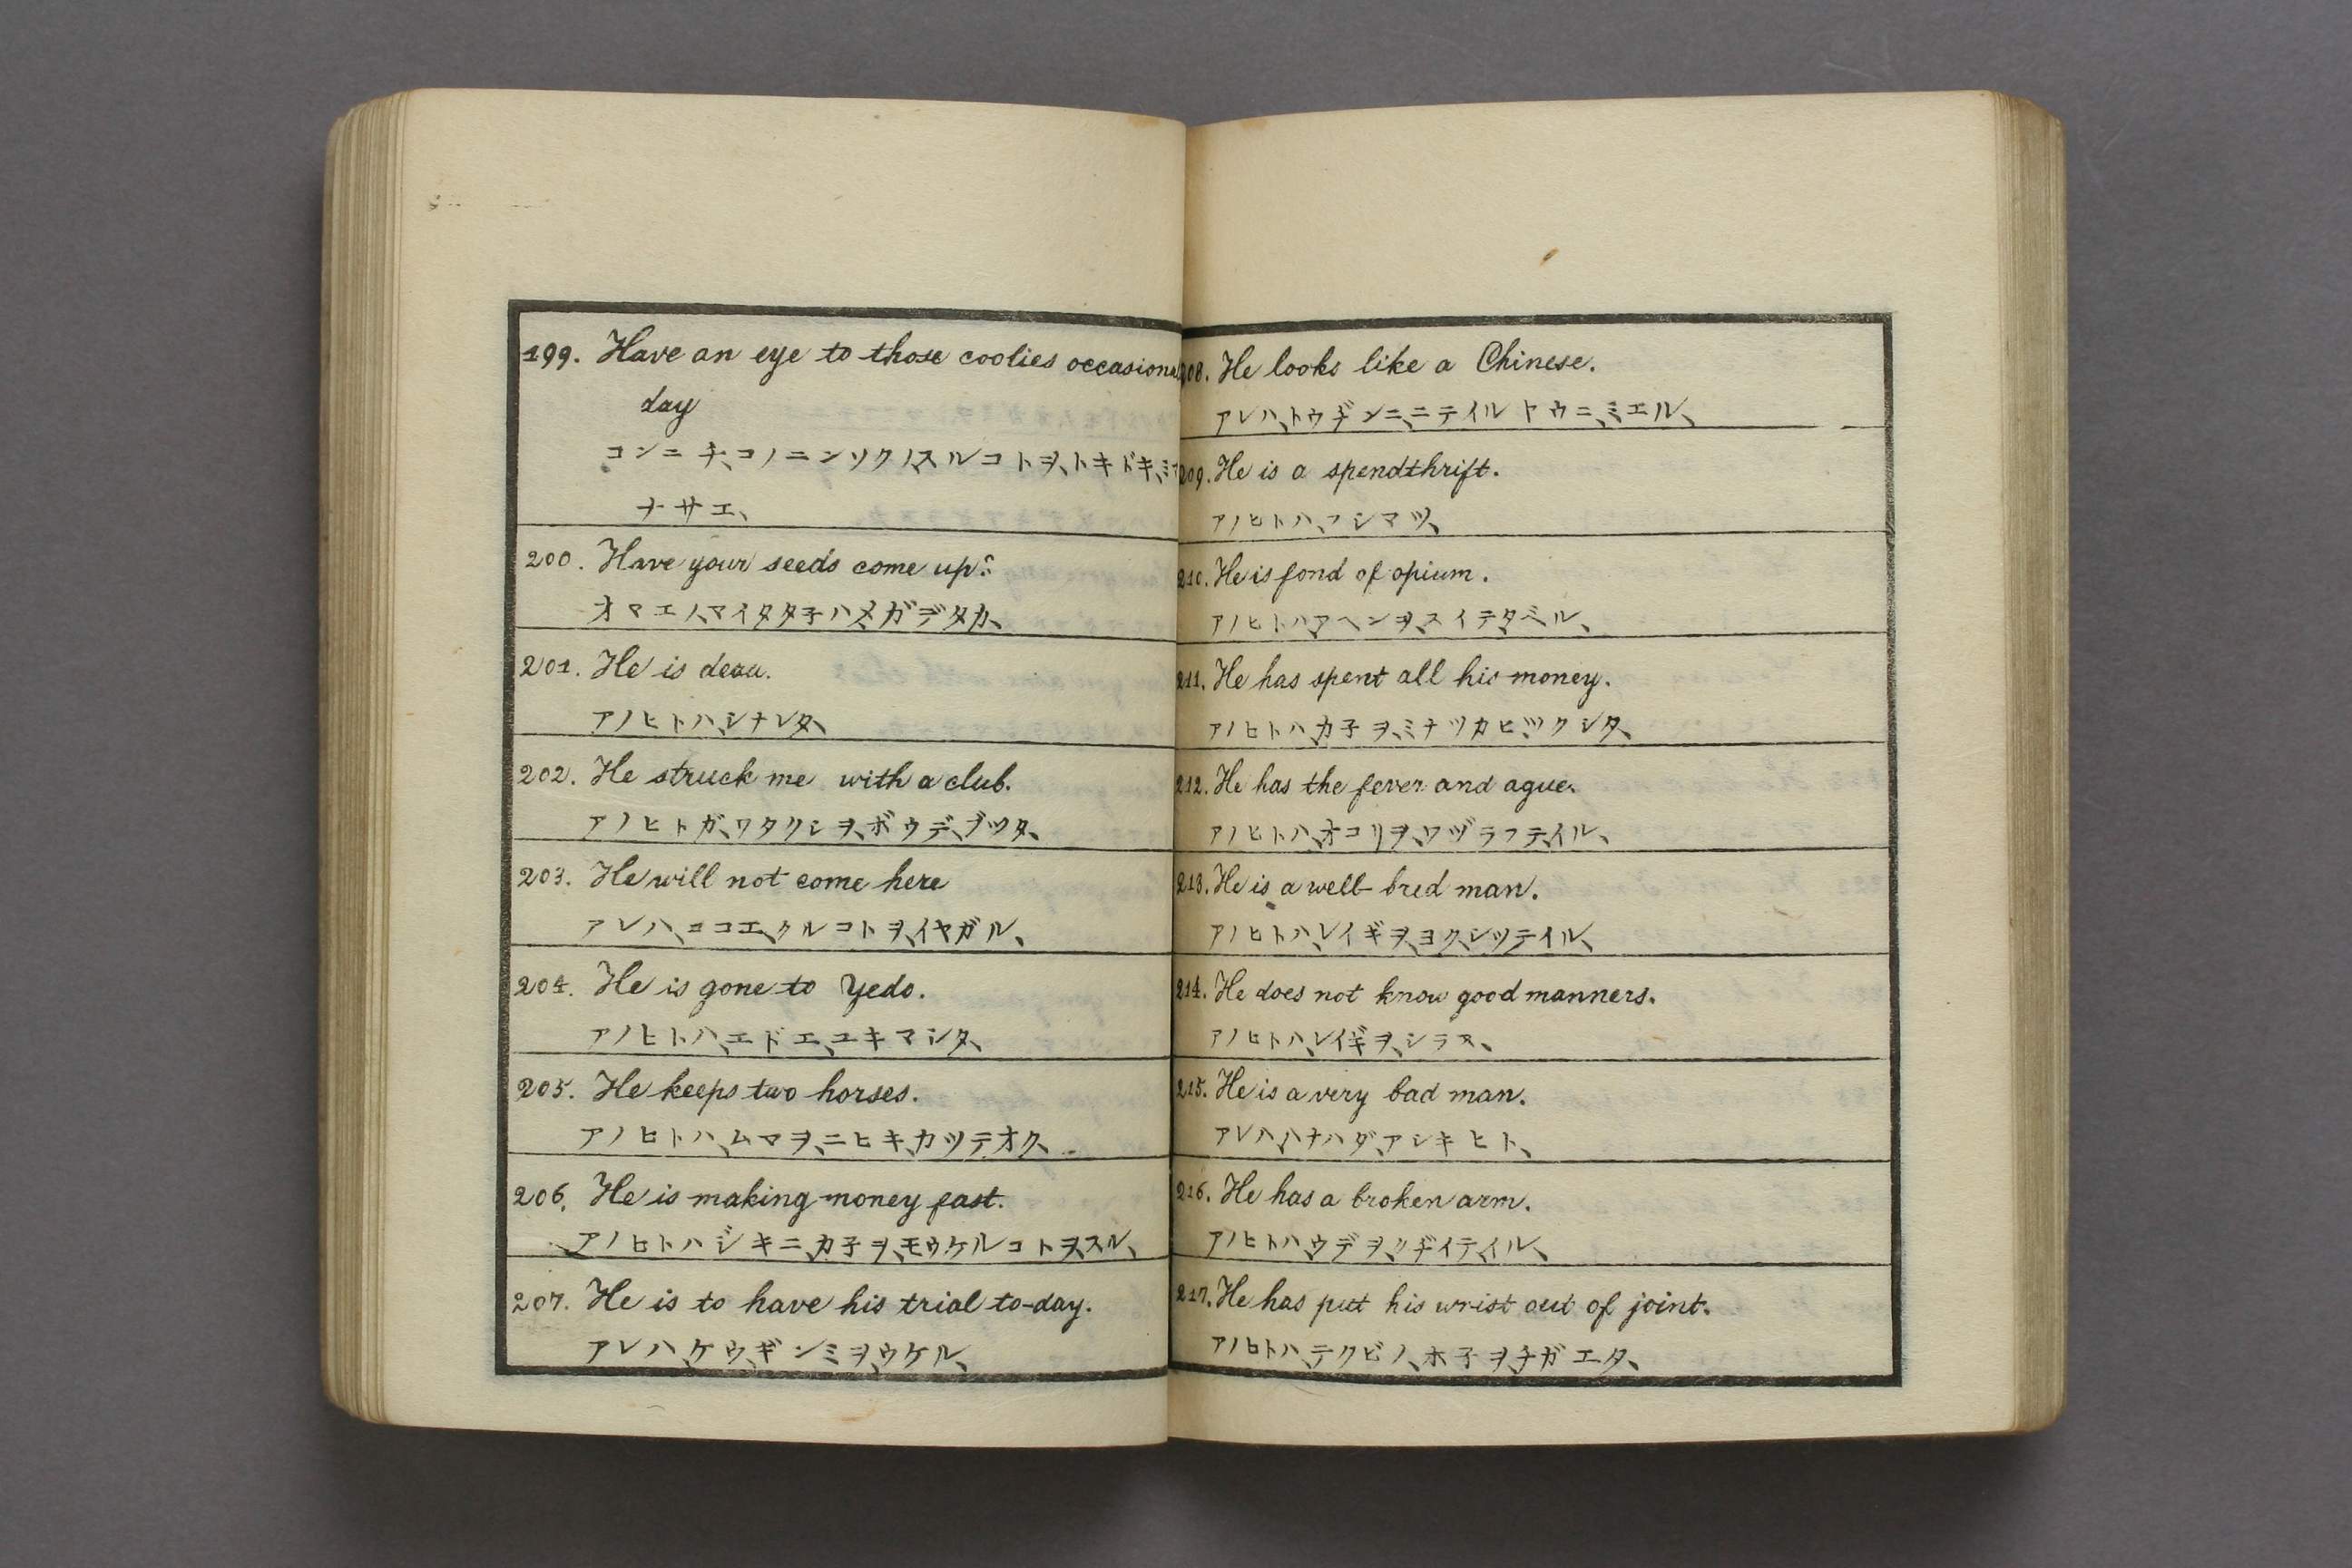 199. Have an eye to those coolies occasiona
day
コンニチ、コノニンソクノ、スルコトヲ、トキドキ、ミ
ナサエ、
200. Have your seeds come up?
オマエノ、マイタタ子ハ、メガデタカ、
201. He is dead.
アノヒトハ、シナレタ、
202. He struck me with a club.
アノヒトガ、ワタクシヲ、ボウデ、ブツタ、
203. He will not come here
アレハ、ココエ、クルコトヲ、イヤガル、
204. He is gone to Yedo.
アノヒトハ、エドエ、ユキマシタ、
205. He keeps two horses.
アノヒトハ、ムマヲ、ニヒキ、カツテオク、
206. He is making money fast.
アノヒトハジキニ、カ子ヲ、モウケルコトヲ、スル、
207. He is to have his trial to-day.
アレハ、ケウ、ギンミヲ、ウケル、
208. He looks like a Chinese.
アレハ、トウヂンニ、ニテイルヤウニ、ミエル、
209. He is a spendthrift.
アノヒトハ、フシマツ、
210. He is fond of opium.
アノヒトハ、アヘンヲ、スイテ、タベル、
211. He has spent all his money.
アノヒトハ、カ子ヲ、ミナツカヒ、ツクシタ、
212. He has the fever and ague.
アノヒトハ、オコリヲ、ワヅラフテ、イル、
213. He is a well-bred man.
アノヒトハ、レイギヲ、ヨク、シツテイル、
214. He does not know good manners.
アノヒトハ、レイギヲ、シラヌ、
215. He is a very bad man.
アレハ、ハナハダ、アシキヒト、
216. He has a broken arm.
アノヒトハ、ウデヲ、クヂイテ、イル、
217. He has put his wrist out of joint.
アノヒトハ、テクビノ、ホ子ヲ、チガエタ、